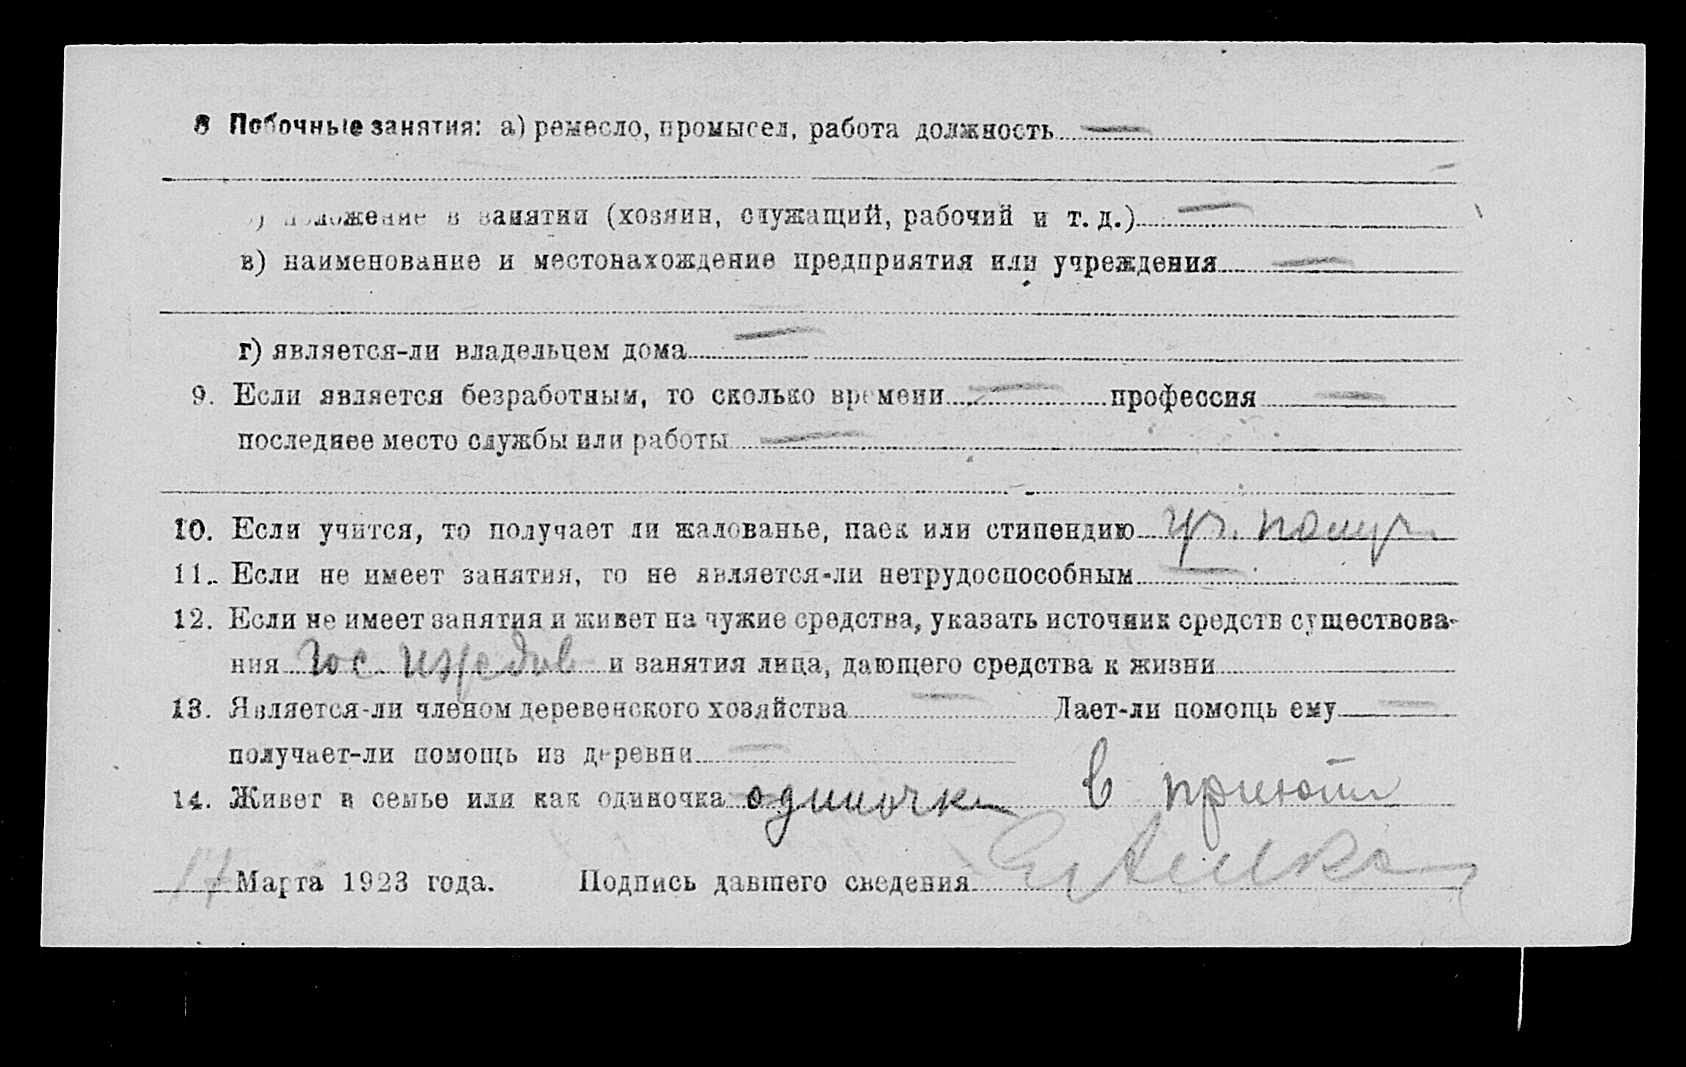 8 Побочные занятия: а) ремесло, промысел, работа должность —
положение в занятии (хозяин, служащий, рабочий и т. д.) —
в) наименование и местонахождение предприятия или учреждения —
г) является-ли владельцем дома —
9. Если является безработным, то сколько времени — профессия —
последнее место службы или работы —
10. Если учится, то получает ли жалованье, паек или стипендию
11. Если не имеет занятия, то не является-ли нетрудоспособным —
12. Если не имеет занятия и живет на чужие средства, указать источник средств существова-
ния гос и занятия лица, дающего средства к жизни
13. Является-ли членом деревенского хозяйства — Дает-ли помощь ему —
получает-ли помощь из деревни —
14. Живет в семье или как одиночка одиночка в приюте
17 Марта 1923 года. Подпись давшего сведения